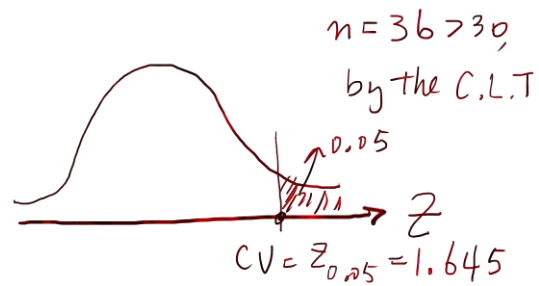 n = 36 > 30,
by the C.L.T
0.05
Z
CV = Z_{0.05} = 1.645